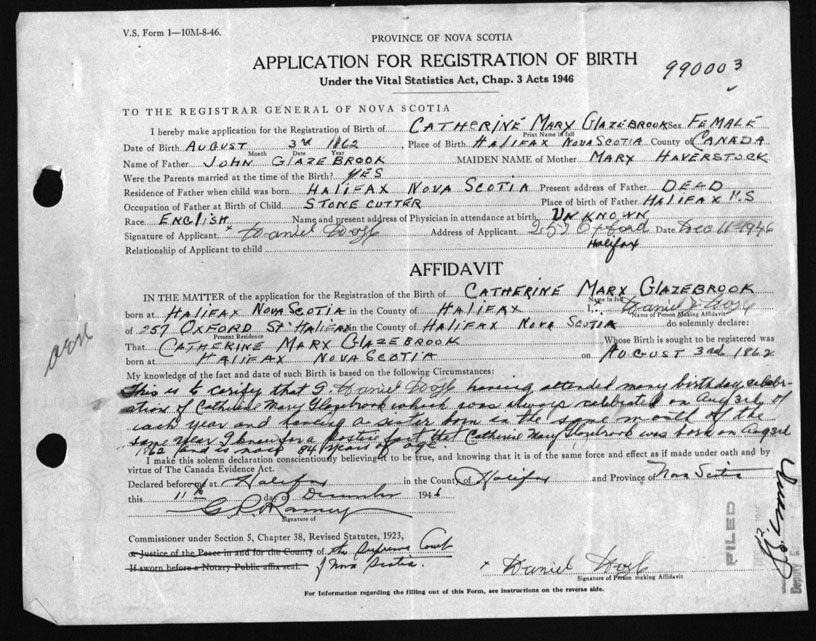 V.S. Form 1—10M-8-46.
PROVINCE OF NOVA SCOTIA
APPLICATION FOR REGISTRATION OF BIRTH
990003
Under the Vital Statistics Act, Chap. 3 Acts 1946
TO THE REGISTRAR GENERAL OF NOVA SCOTIA
I hereby make application for the Registration of Birth of CATHERINE MARY GLAZEBROOK Sex FEMALE
Print Name in full
Date of Birth AUGUST 3rd 1862, Place of Birth HALIFAX NOVA SCOTIA County of CANADA
Month Date Year
Name of Father JOHN GLAZEBROOK MAIDEN NAME of Mother MARY HAVERSTOCK
Were the Parents married at the time of the Birth? YES
Residence of Father when child was born HALIFAX NOVA SCOTIA Present address of Father DEAD
Occupation of Father at Birth of Child STONE CUTTER Place of birth of Father HALIFAX N.S
Race ENGLISH Name and present address of Physician in attendance at birth UNKNOWN
Signature of Applicant x Daniel Address of Applicant 257 Oxford Date Dec 11-1946
Halifax
Relationship of Applicant to child
AFFIDAVIT
IN THE MATTER of the application for the Registration of the Birth of CATHERINE MARY GLAZEBROOK
Name in full
born at HALIFAX NOVA SCOTIA in the County of HALIFAX I, Daniel
Name of Person Making Affidavit
of 257 OXFORD St HALIFAX in the County of HALIFAX NOVA SCOTIA do solemnly declare:
Present Residence
That CATHERINE MARY GLAZEBROOK Whose Birth is sought to be registered was
born at HALIFAX NOVA SCOTIA on AUGUST 3rd 1862
My knowledge of the fact and date of such Birth is based on the following Circumstances:
This is to carify that I Daniel having attended many birthday celebr-
ation of Catherine Mary Glazebrook which was always celebrated on Aug 3rd of
each year and having a sister born in the same month of the
same year I know for a fact that Catherine Mary Glazebrook was born on Aug 3rd
1862 and is now 84 years of age
I make this solemn declaration conscientiously believing it to be true, and knowing that it is of the same force and effect as if made under oath and by
virtue of The Canada Evidence Act.
Declared before at Halifax in the County of Halifax and Province of Nova Scotia
this 11th day of December 1946
Signature of
Commissioner under Section 5, Chapter 38, Revised Statutes, 1923,
or Justice of the Peace in and for the County of the Supreme Court
If sworn before a Notary Public affix seal. of Nova Scotia.
x Daniel
Signature of Person making Affidavit
For Information regarding the filling out of this Form, see instructions on the reverse side.
FILED
Deputy